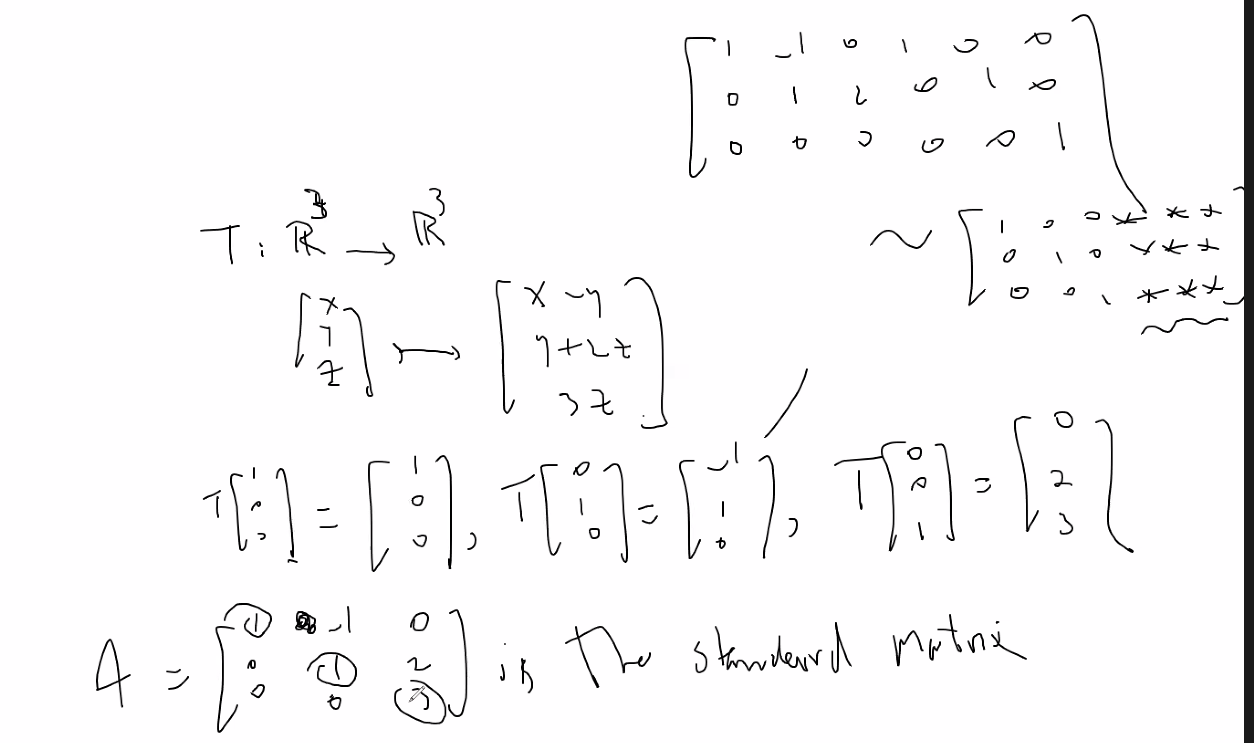 1 -1 0 1 0 0
0 1 2 0 1 0
0 0 3 0 0 1
T: ℝ³ → ℝ³
~ [1 0 0 * * *
0 1 0 * * *
0 0 1 * * *]
[x y z] ↦ [x - y
y + 2z
3z]
T[1 0 0] = [1 0 0], T[0 1 0] = [-1 1 0], T[0 0 1] = [0 2 3]
A = [1 -1 0
0 1 2
0 0 3] is the standard matrix